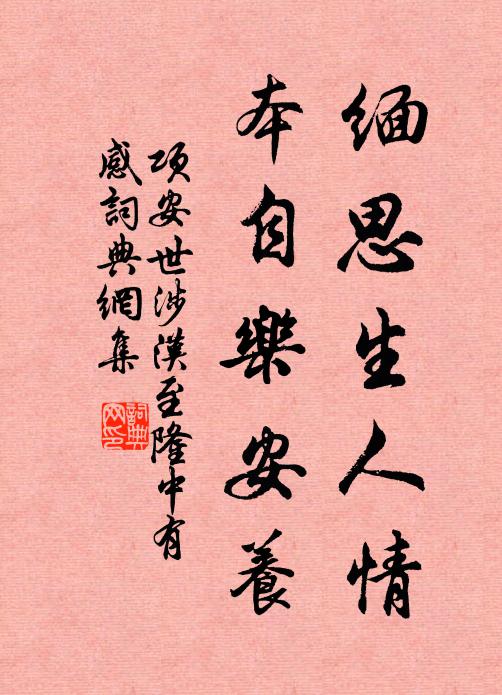 緬思生人情
本自樂安養
項安世涉漢至隆中有
感詞典網集
詞典網印